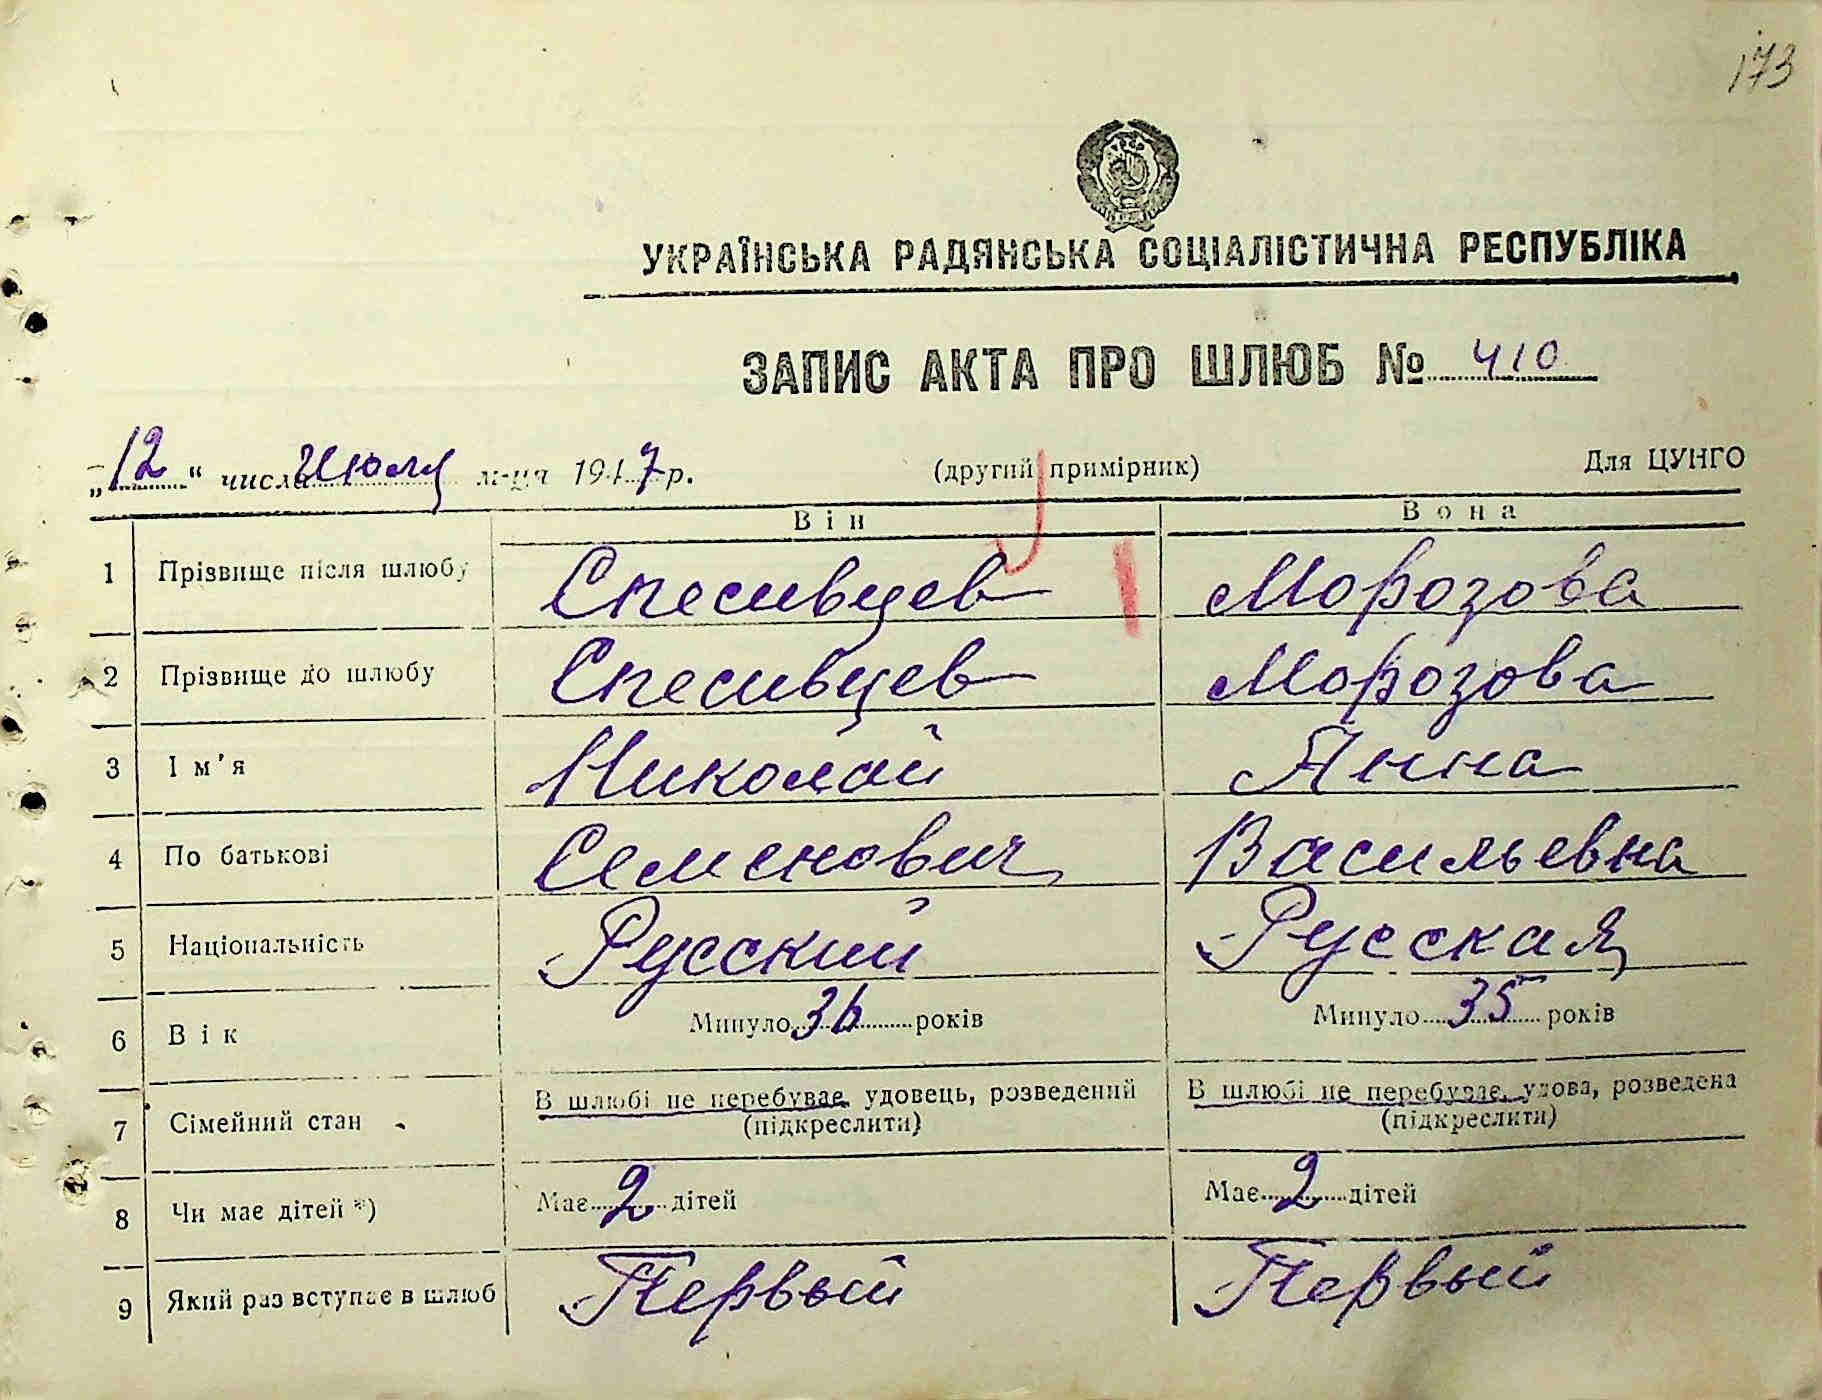 173
УКРАЇНСЬКА РАДЯНСЬКА СОЦІАЛІСТИЧНА РЕСПУБЛІКА
ЗАПИС АКТА ПРО ШЛЮБ № 410
„12“ числа Июля м-ця 1947 р. (другий примірник) Для ЦУНГО
Він Вона
1 Прізвище після шлюбу Спесивцев Морозова
2 Прізвище до шлюбу Спесивцев Морозова
3 Ім'я Николай Анна
4 По батькові Семенович Васильевна
5 Національність Русский Русская
6 Вік Минуло 36 років Минуло 35 років
7 Сімейний стан В шлюбі не перебуває, удовець, розведений В шлюбі не перебуває, удова, розведена
(підкреслити) (підкреслити)
8 Чи має дітей *) Має 2 дітей Має 2 дітей
9 Який раз вступає в шлюб Первый Первый